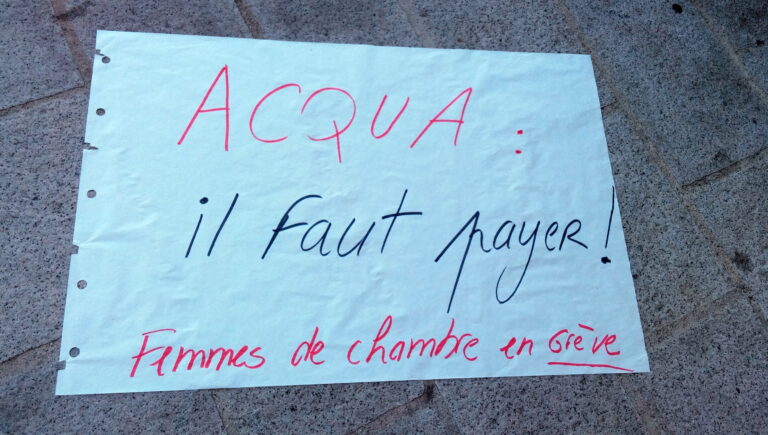 ACQUA :
il faut payer !
Femmes de chambre en Grève